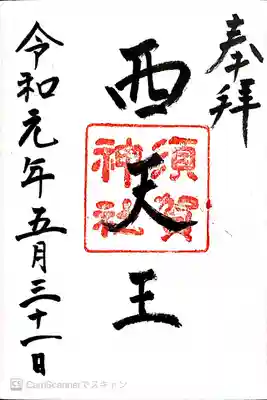 奉拝
西天王
須賀神社
令和元年五月三十一日
CamScannerでスキャン